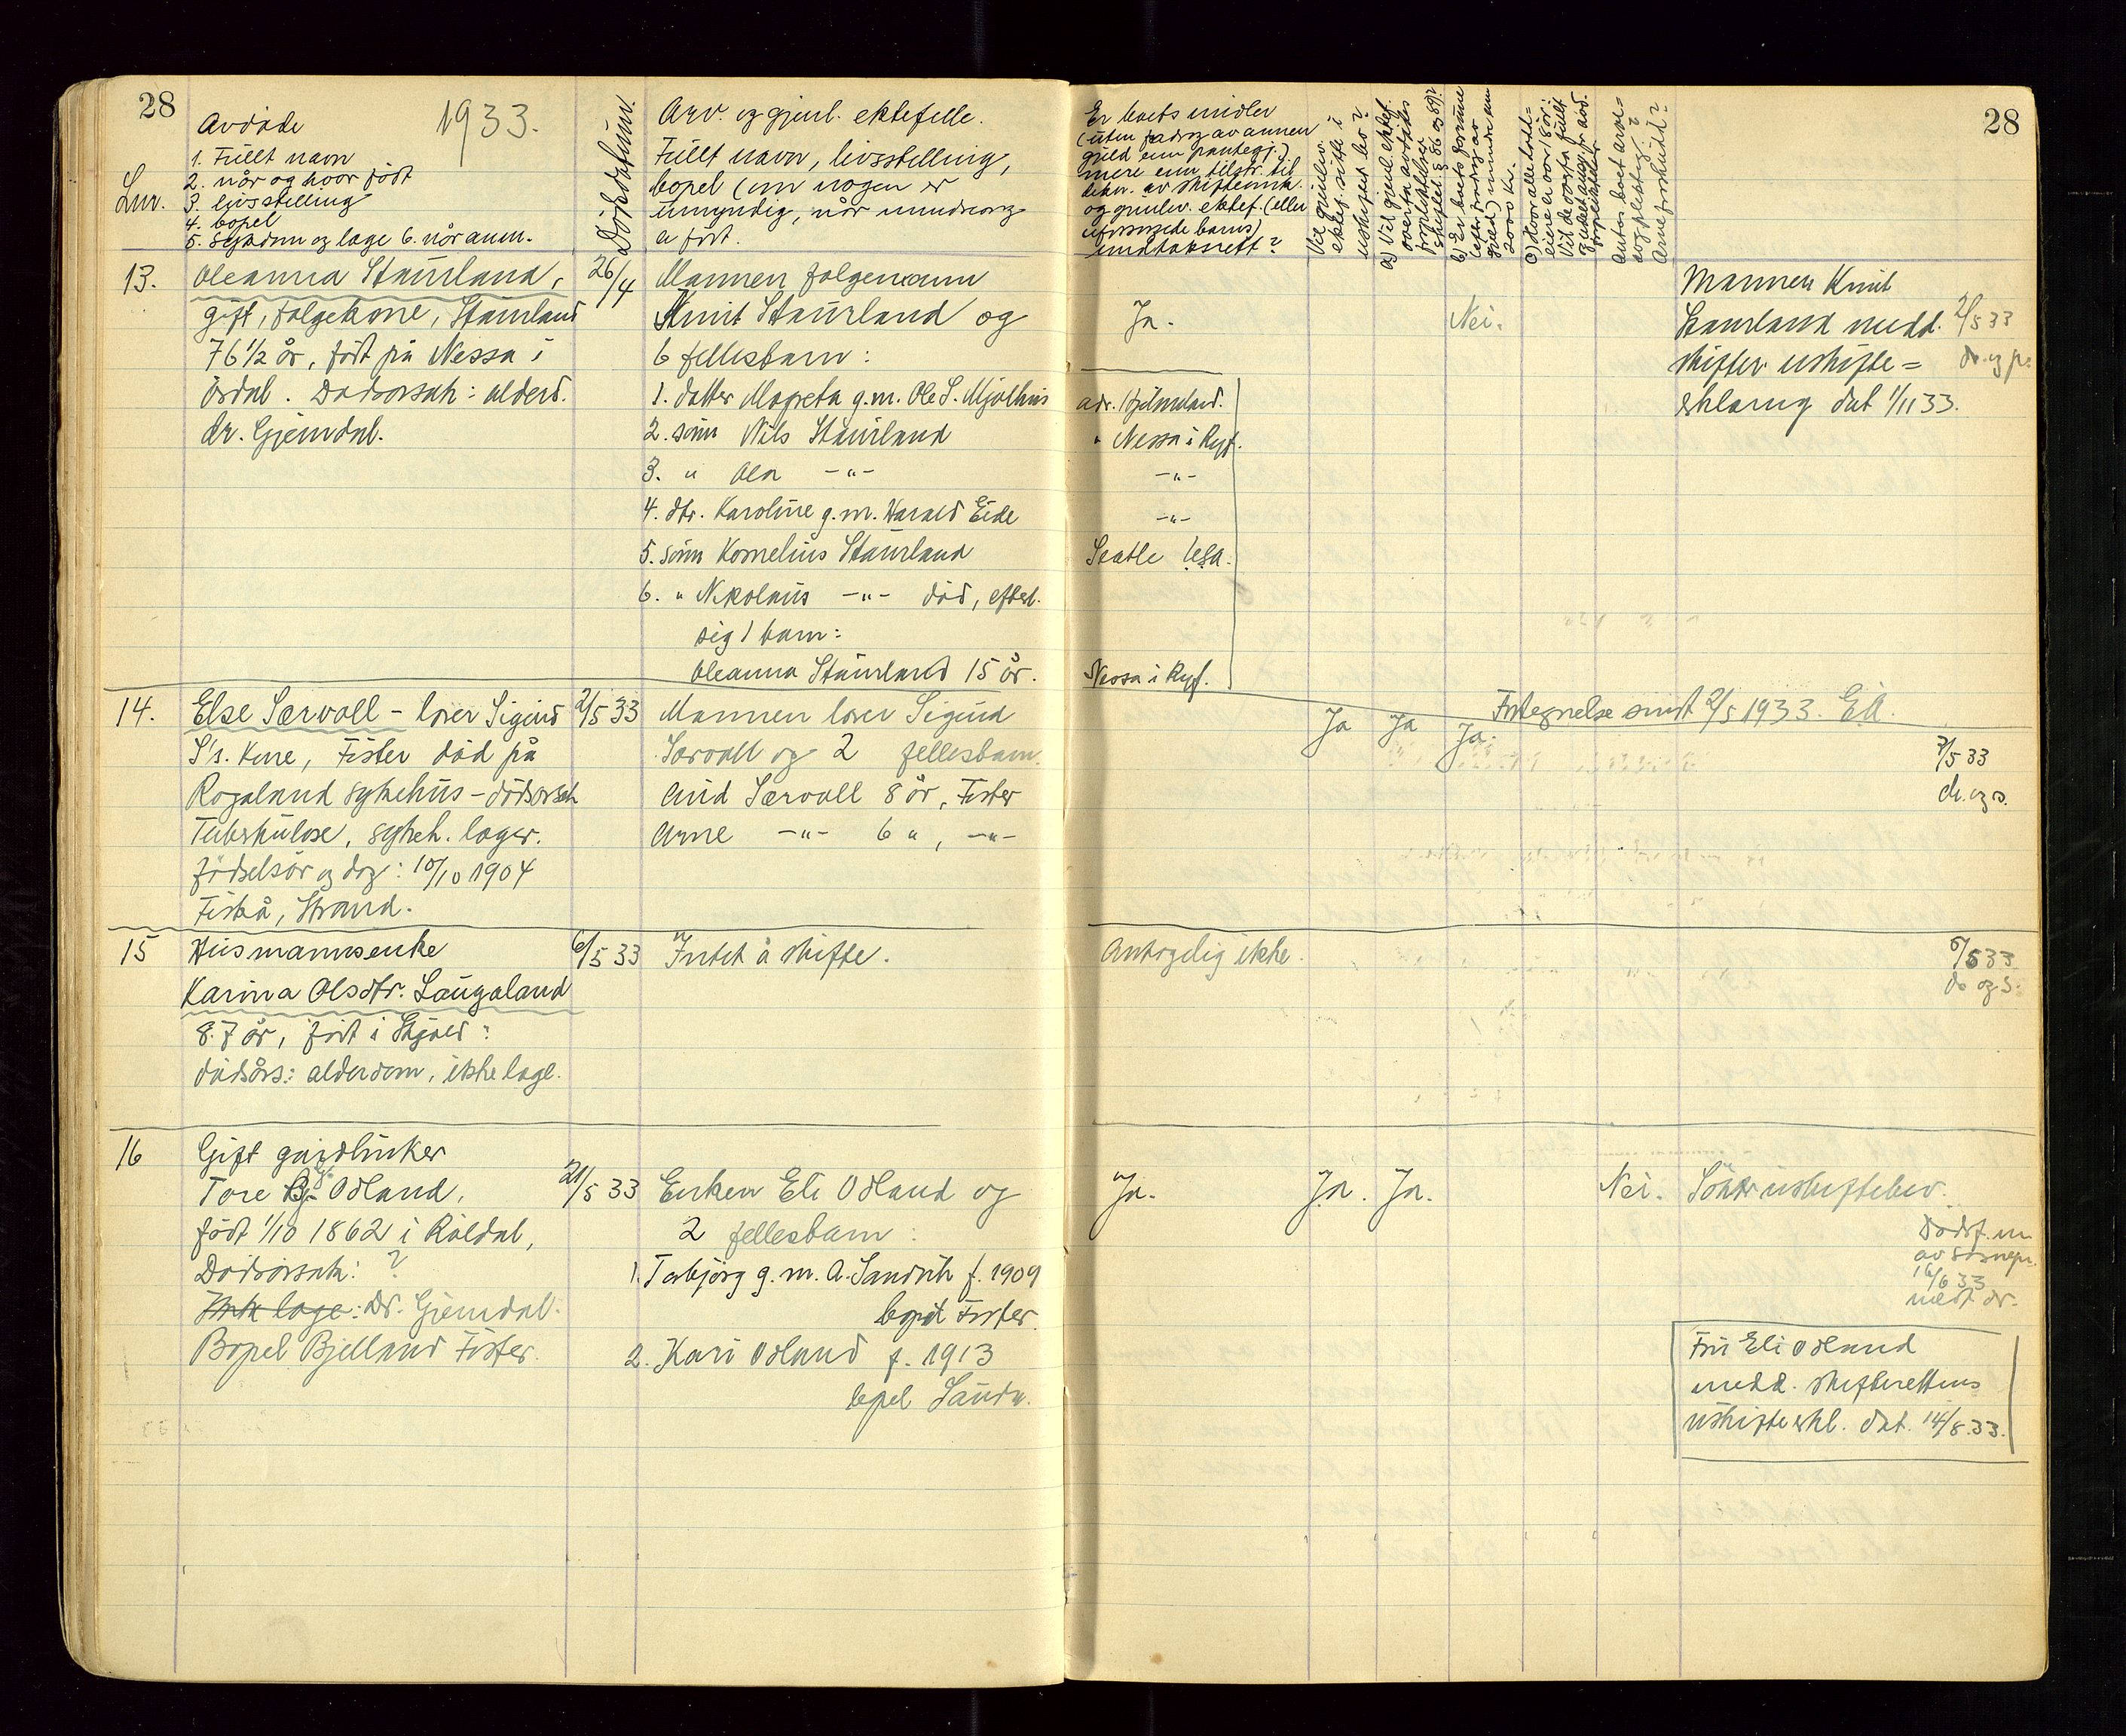 28
1933.
Avdøde
1. Fullt navn
2. når og hvor født
3. livsstilling
4. bopel
5. sykdom og læge 6. når anm.
Lnr.
Dødsdatum.
Arv. og gjenl. ektefelle.
Fullt navn, livsstilling,
bopel (om nogen er
umyndig, når vedkommende
er født.
Er boets midler
(uten fradrag av annen
gjeld enn pantegj.)
mere enn tilstr. til
dekn. av skifteomk.
og gjenlev. ektef. (eller
uforsørgede barns)
undtaksrett?
Vil gjenlev.
ektef. sitte i
uskiftet bo?
a) Vil gjenl. ektef.
overta avdødes
b) Er boets formue
(efter fradrag av
gjeld) mindre enn
2000 kr.
28
13.
Oleanna Staurland,
gift, folgekone, Staurland
76 1/2 år, født på Nessa i
Årdal. Dødsorsak: alderd.
dr. Gjemdal.
26/4
Mannen folgemann
Knut Staurland og
6 fellesbarn:
1. datter Magreta g.m. Ole S. Mjølhus
2. sønn Nils Staurland
3. " Ola -"-
4. dtr. Karoline g.m. Harald Eide
5. sønn Kornelius Staurland
6. " Nikolaus -"- død, efterl.
sig 1 barn:
Oleanna Staurland 15 år.
Ja.
adr. Hjelmeland.
" Nessa i Ryf.
-"-
-"-
Seatle Usa.
Nessa i Ryf.
Nei.
Mannen Knut
Staurland medd. 2/5 33
skifter uskifte=
erklæring dat 1/11 33.
14.
Else Sørvoll - lærer Sigurd
S's. kone, Fister død på
Rogaland sykehus - dødsorsak
Tuberkulose, sykeh. læger.
fødselsår og dag: 10/10 1904
Fiskå, Strand.
2/5 33
Mannen lærer Sigurd
Sørvoll og 2 fellesbarn
Aud Sørvoll 8 år, Fister
Arne -"- 6 ", -"-
Ja Ja Ja.
Fortegnelse sendt 2/5 1933. EA.
3/5 33
dr. og s.
15
Husmannsenke
Karina Olsdtr. Laugaland
87 år, født i Skjold:
dødsårs: alderdom, ikke læge.
6/5 33
Intet å skifte.
Antagelig ikke.
6/5 33
dr og s.
16
Gift gårdbruker
Tore Odland,
født 1/10 1862 i Røldal,
Dødsorsak: ?
Ikke læge: Dr. Gjemdal.
Bopel Bjelland Fister.
21/5 33
Enken Eli Odland og
2 fellesbarn:
1. Torbjørg g.m. A. Sandvik f. 1909
bopel Fister.
2. Kari Odland f. 1913
bopel Sauda.
Ja.
Ja. Ja.
Nei.
Søker uskiftebev.
Dødsf. m
av sognepr.
16/6 33
medt dr.
Fru Eli Odland
medd. skifterettens
uskifteerkl. dat. 14/8.33.